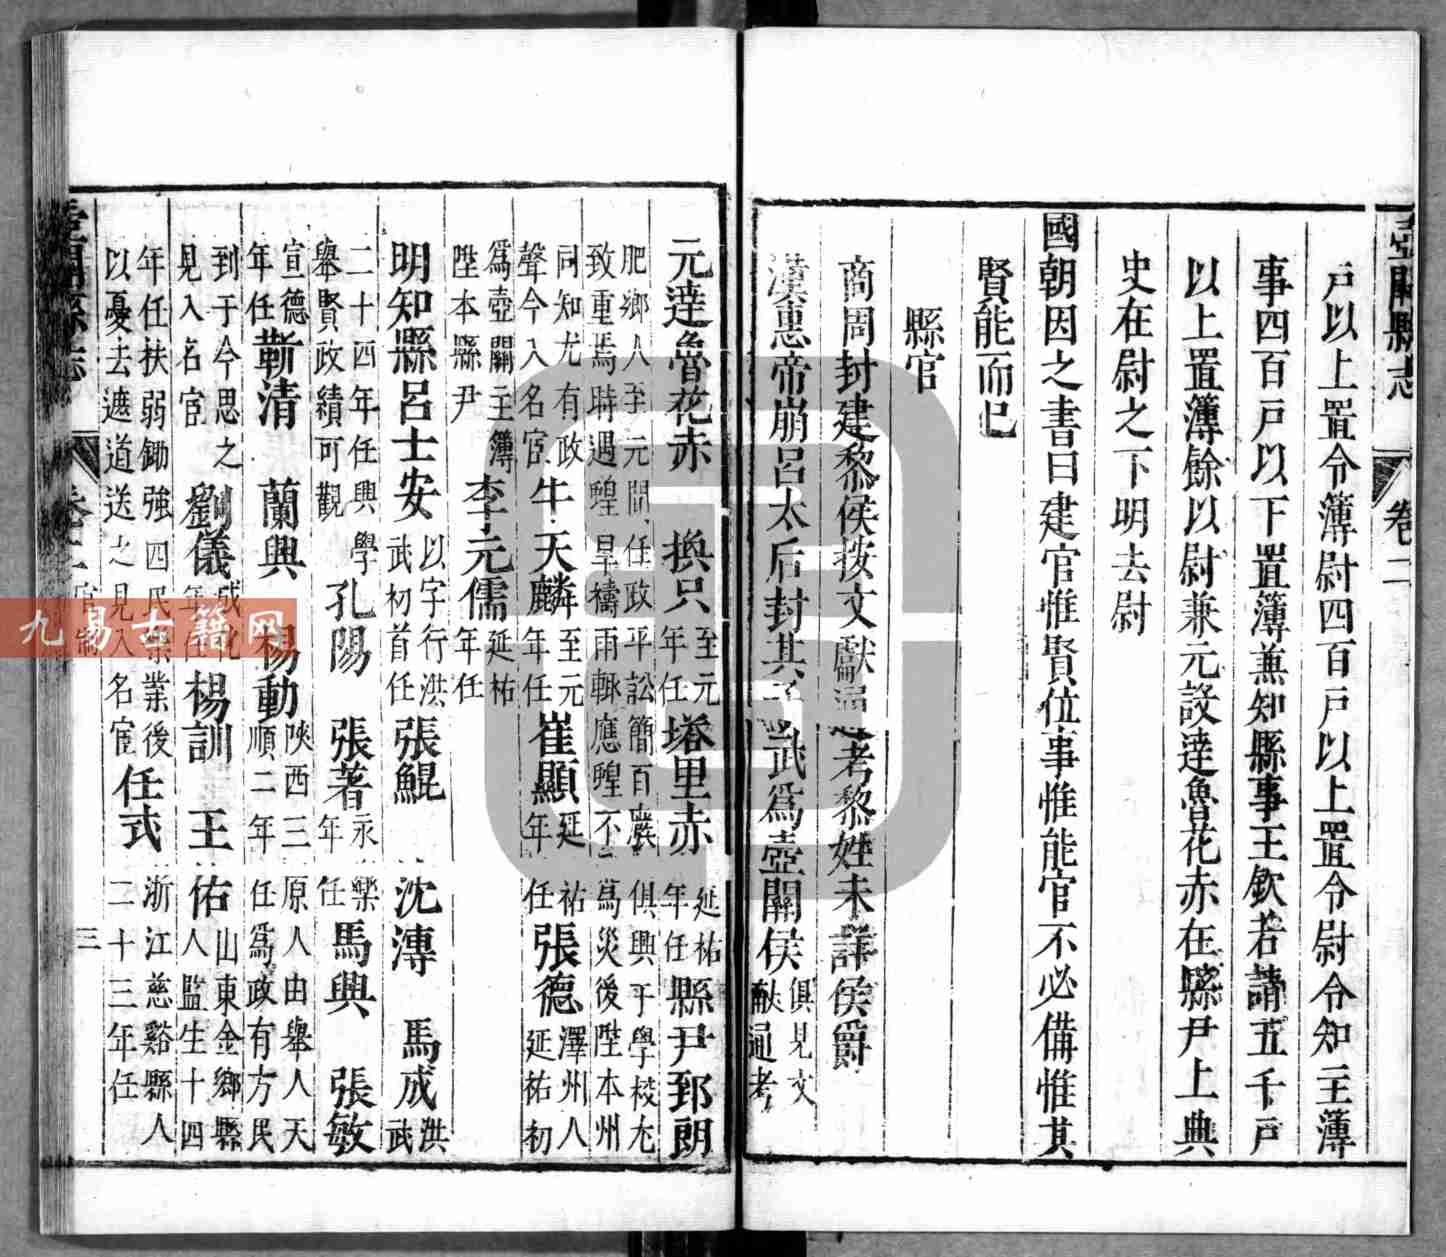 壺關縣志 卷二
戸以上置令簿尉四百戸以上置令尉令知主簿
事四百戸以下置簿兼知縣事王欽若請五千戸
以上置簿餘以尉兼元設達魯花赤在縣尹上典
史在尉之下明去尉
國朝因之書曰建官惟賢位事惟能官不必備惟其
賢能而已
縣官
商周封建黎侯按文獻通考黎姓未詳侯爵
漢惠帝崩呂太后封其子武爲壺關侯俱見文獻通考
元達魯花赤 換只至元年任 塔里赤延祐年任 縣尹郅朗
肥鄉人至元間任政平訟簡百廢俱興于學校尤
致重焉時遇蝗旱禱雨輙應蝗不爲災後陞本州
同知尤有政聲今入名宦 牛天麟至元年任 崔顯延祐年任 張德澤州人延祐初
爲壺關主簿陞本縣尹 李元儒延祐年任
明知縣呂士安以字行洪武初首任 張鯤 沈漙 馬成洪武
二十四年任興學舉賢政績可觀 孔陽 張著永樂年任 馬興 張敏
宣德年任 靳清 蘭興 楊勳陝西三原人由舉人天順二年任爲政有方民
到于今思之見入名宦 劉儀成化年任 楊訓 王佑山東金鄉縣人監生十四
年任扶弱鋤強四民樂業後以憂去遮道送之見入名宦 任式浙江慈谿縣人二十三年任
壺關縣志 卷二 官 三
九易古籍网